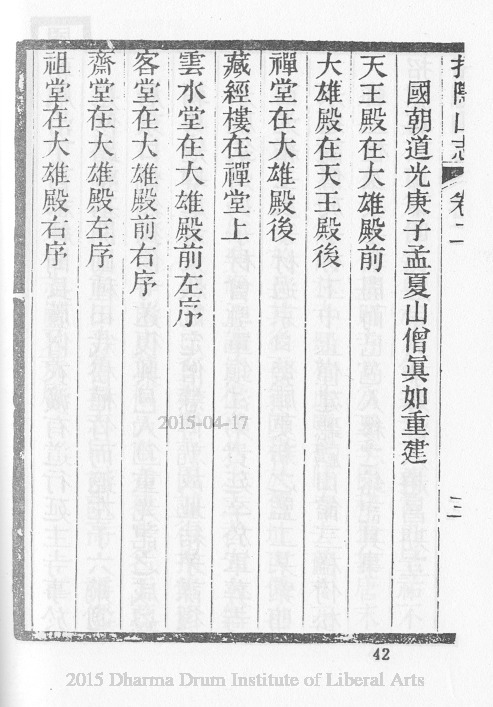 招隱山志 卷二 三
國朝道光庚子孟夏山僧眞如重建
天王殿在大雄殿前
大雄殿在天王殿後
禪堂在大雄殿後
藏經樓在禪堂上
雲水堂在大雄殿前左序
客堂在大雄殿前右序
齋堂在大雄殿左序
祖堂在大雄殿右序
2015-04-17
42
2015 Dharma Drum Institute of Liberal Arts